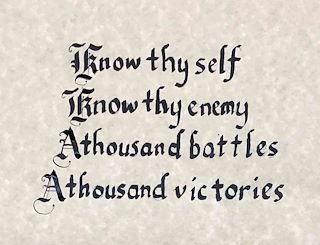 Know thy self
Know thy enemy
A thousand battles
A thousand victories